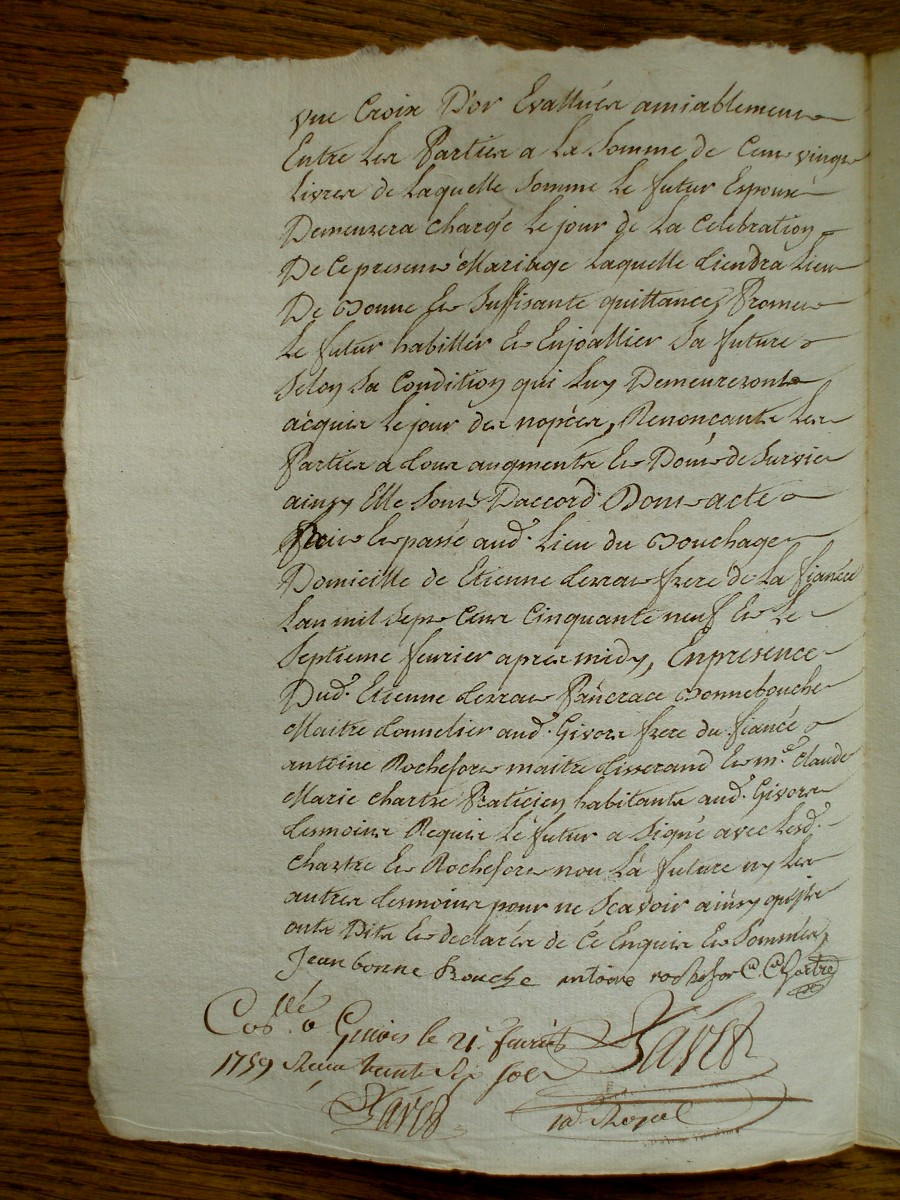 une Croix D'or Evalluée amiablement
Entre Les Parties a La Somme de Cent vingt
Livres de Laquelle Somme Le futur Espoux
Demeurera chargé Le jour de La Celebration
De Ce present Mariage Laquelle tiendra Lieu
De Bonne Et Suffisante quittance, Promet
Le futur habiller Et Enjoallier Sa future
Selon Sa Condition qui Luy Demeureront
acquis Le jour des nopces, Renonçants Les
Parties a tous augments Et Dons de Survie
ainsy Elle Sont D'accord Dont acte
fait Et passé aud. Lieu du Bouchage
Domicille de Etienne terras frere de La fiancée
Lan mil Sept Cent Cinquante neuf Et Le
Septieme fevrier apres midy, En presence
Dud. Etienne terras Pancrace Bonnebouche
Maitre tonnelier aud. Givors frere du fiancé
antoine Rochefort maitre tisserand Et me. Claude
Marie chartre Praticien habitants aud. Givors
tesmoins Requis Le futur a Signé avec Lesd.
Chartre Et Rochefort non La future ny Les
autres tesmoins pour ne Scavoir ainsy qu'ils
ont Dit Et declarés de Ce Enquis Et Sommés
Jean bonne Bouche antoine rochefor C. Chartre
Collé a Givors le 21e fevrier
1759 Reçu trente Six sols
Favet
Favet
no Royal